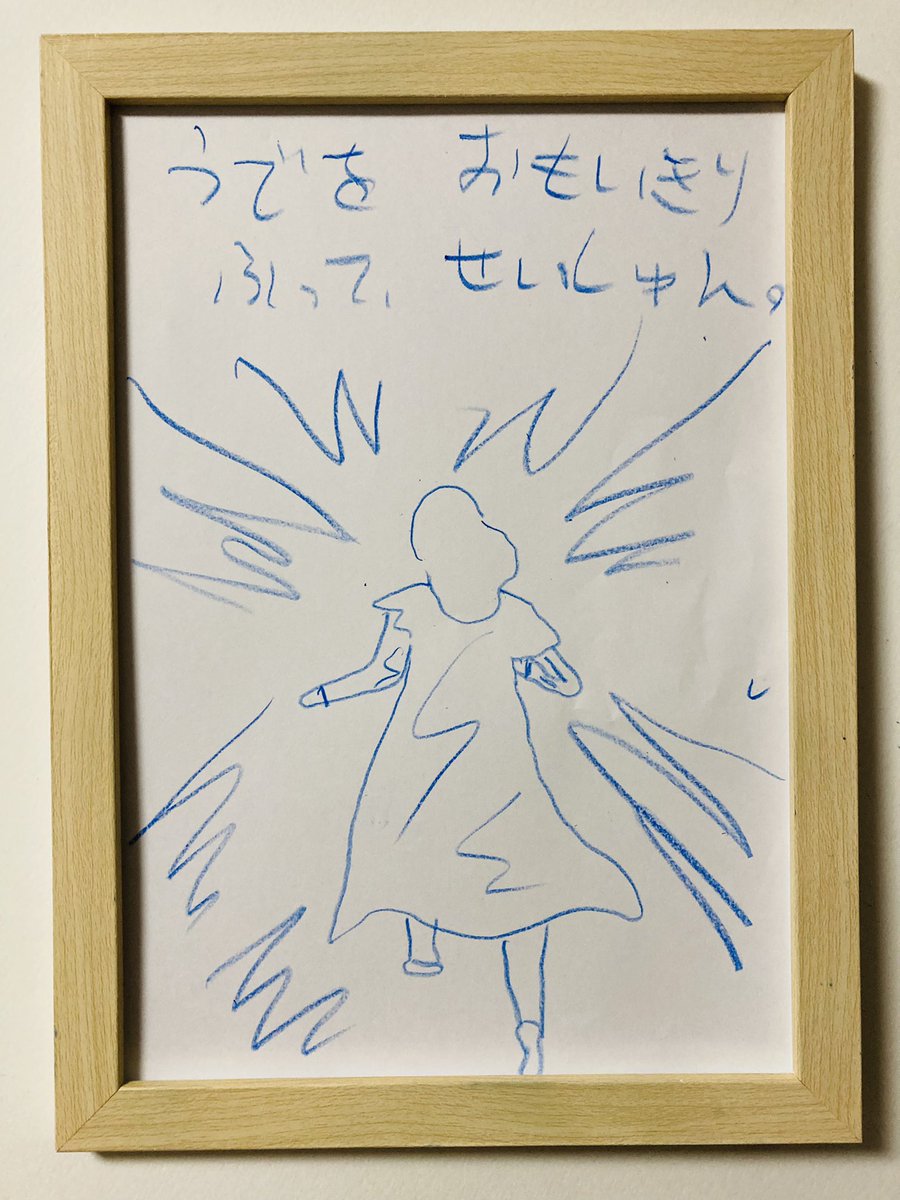 うでを　おもいきり
ふって、せいしゅん。